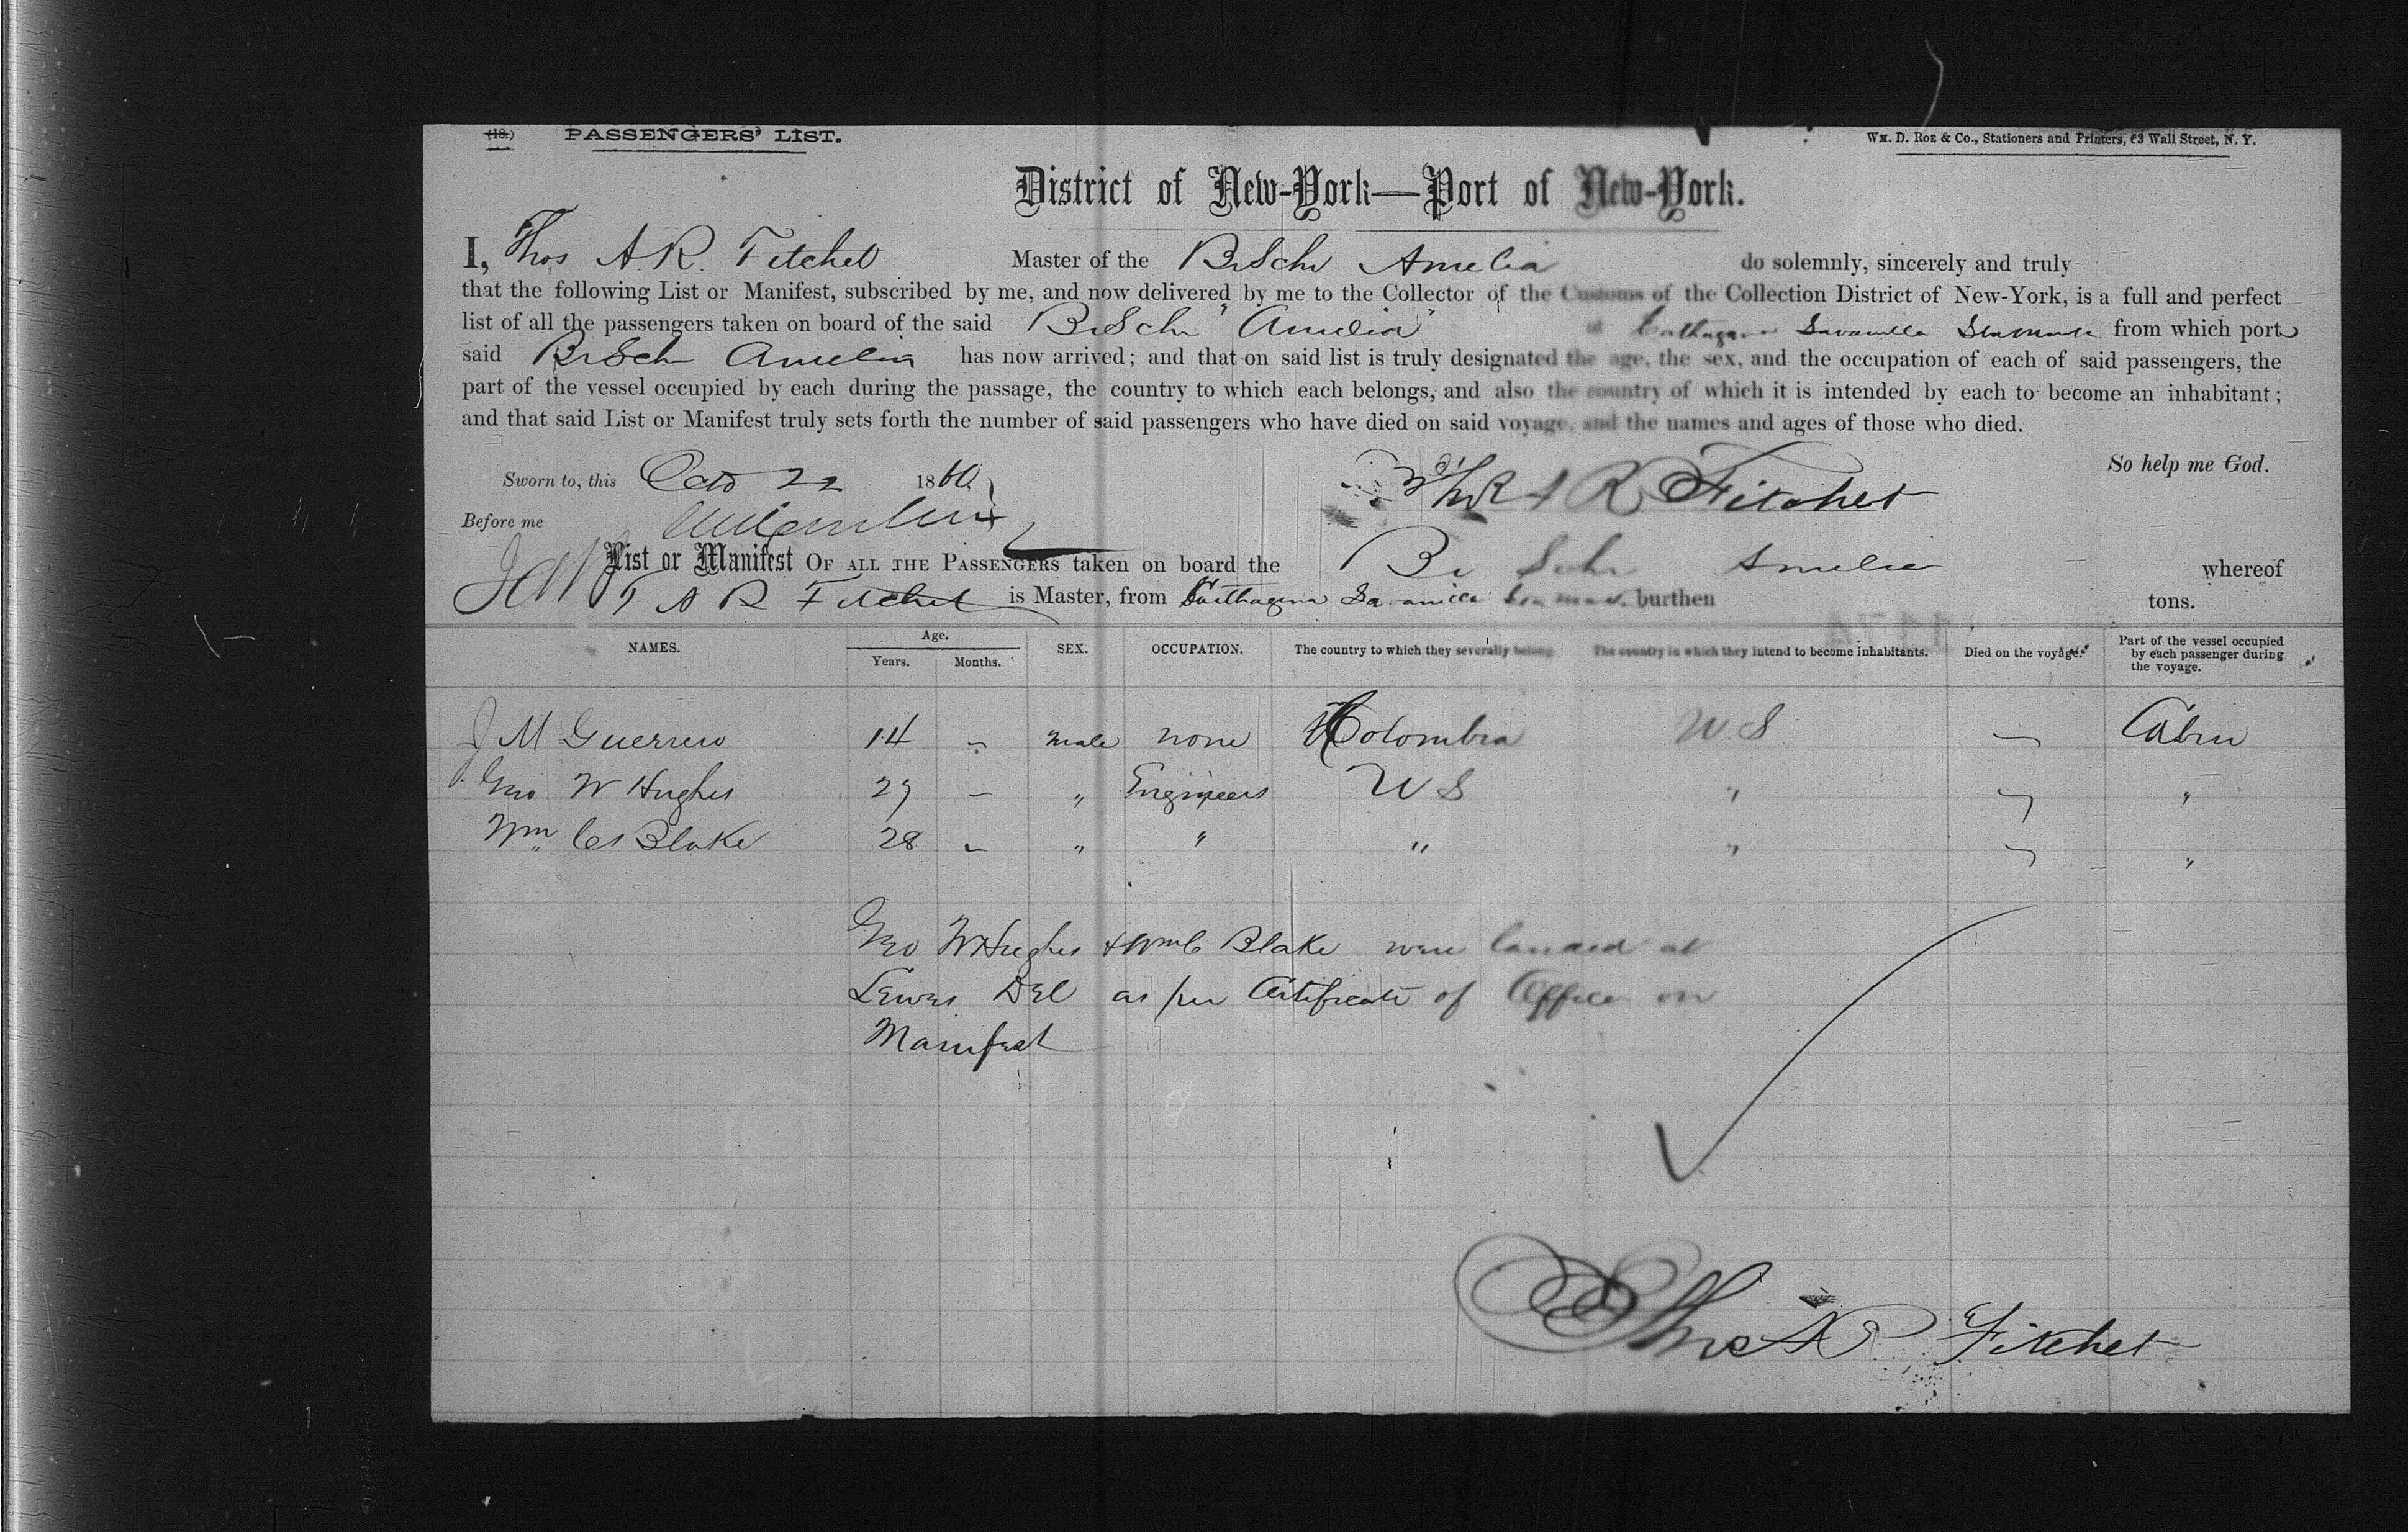 (18.) PASSENGERS' LIST. WM. D. ROE & CO., Stationers and Printers, 63 Wall Street, N. Y.
District of New-York—Port of New-York.
I, Thos A. R. Fitchet Master of the Br Schr Amelia do solemnly, sincerely and truly
that the following List or Manifest, subscribed by me, and now delivered by me to the Collector of the Customs of the Collection District of New-York, is a full and perfect
list of all the passengers taken on board of the said Br Schr "Amelia" at Carthagena Savanilla from which port
said Br Sch Amelia has now arrived; and that on said list is truly designated the age, the sex, and the occupation of each of said passengers, the
part of the vessel occupied by each during the passage, the country to which each belongs, and also the country of which it is intended by each to become an inhabitant;
and that said List or Manifest truly sets forth the number of said passengers who have died on said voyage, and the names and ages of those who died.
So help me God.
Sworn to, this Octo 22 1860 Thos A R Fitchet
Before me
List or Manifest OF ALL THE PASSENGERS taken on board the Br Schr Amelia whereof
T A R Fitchet is Master, from Carthagena Savanilla burthen tons.
NAMES. Age. Years. Months. SEX. OCCUPATION. The country to which they severally belong. The country in which they intend to become inhabitants. Died on the voyage. Part of the vessel occupied by each passenger during the voyage.
J M Guerrero 14 - male none Colombia U S — Cabin
Geo W Hughes 29 - " Engineers U S " "
Wm C Blake 28 - " " " " "
Geo W Hughes & Wm C Blake were landed at
Lewes Del as per Certificate of Officer on
Manifest
Thos A R Fitchet